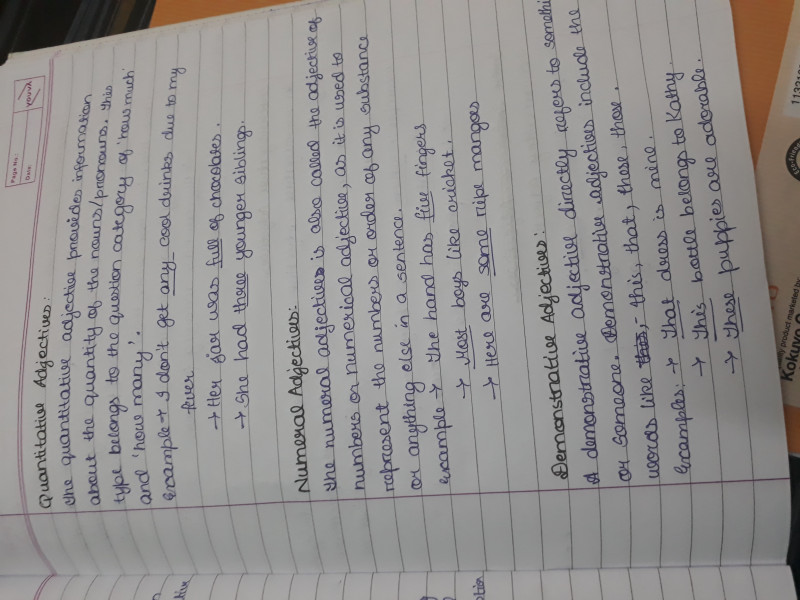 Page No.:
Date:
YOUVA
Quantitative Adjectives:
The quantitative adjective provides information
about the quantity of the nouns/pronouns. This
type belongs to the question category of 'how much'
and 'how many'.
Example → I don't get any cool drinks due to my
fever.
→ Her jar was full of chocolates.
→ She had three younger siblings.
Numeral Adjectives:
The numeral adjectives is also called the adjective of
numbers or numerical adjective, as it is used to
represent the numbers or order of any substance
or anything else in a sentence.
Example → The hand has five fingers
→ Most boys like cricket.
→ Here are some ripe mangoes
Demonstrative Adjectives:
A demonstrative adjective directly refers to somethi
or someone. Demonstrative adjectives include the
words like this, this, that, these, those.
Examples: → That dress is mine.
→ This bottle belongs to Kathy.
→ These puppies are adorable.
product marketed by
Kokuyo